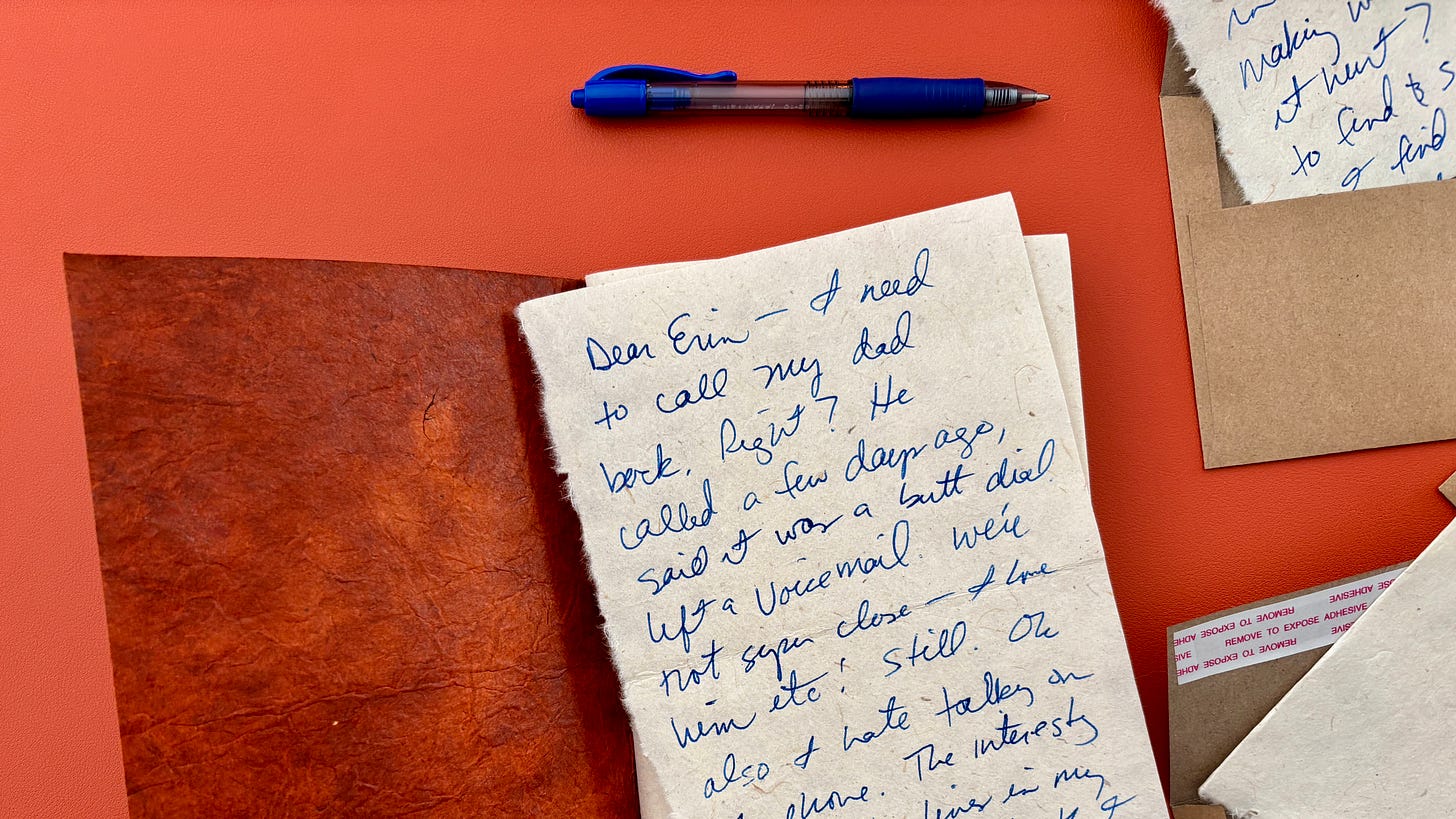 Dear Erin — I need
to call my dad
back. Right? He
called a few days ago,
said it was a butt dial.
left a voicemail. We're
not super close — I love
him etc; still. Oh
also I hate talking on
phone. The interesting
lives in my
making
it hurt?
to find &
& find
REMOVE TO EXPOSE ADHESIVE
REMOVE TO EXPOSE ADHESIVE
REMOVE TO EXPOSE ADHE